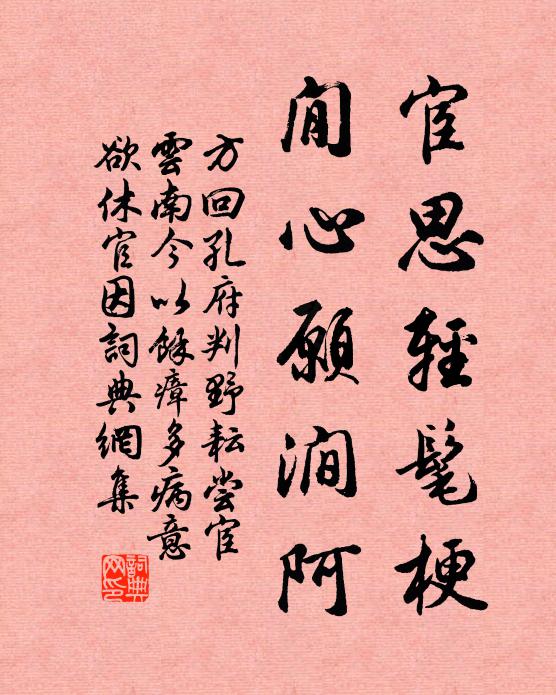 宦思輕髦梗
閒心願澗阿
方回孔府判野耘嘗宦
雲南今以餘瘴多病意
欲休官因詞典網集
詞典网印